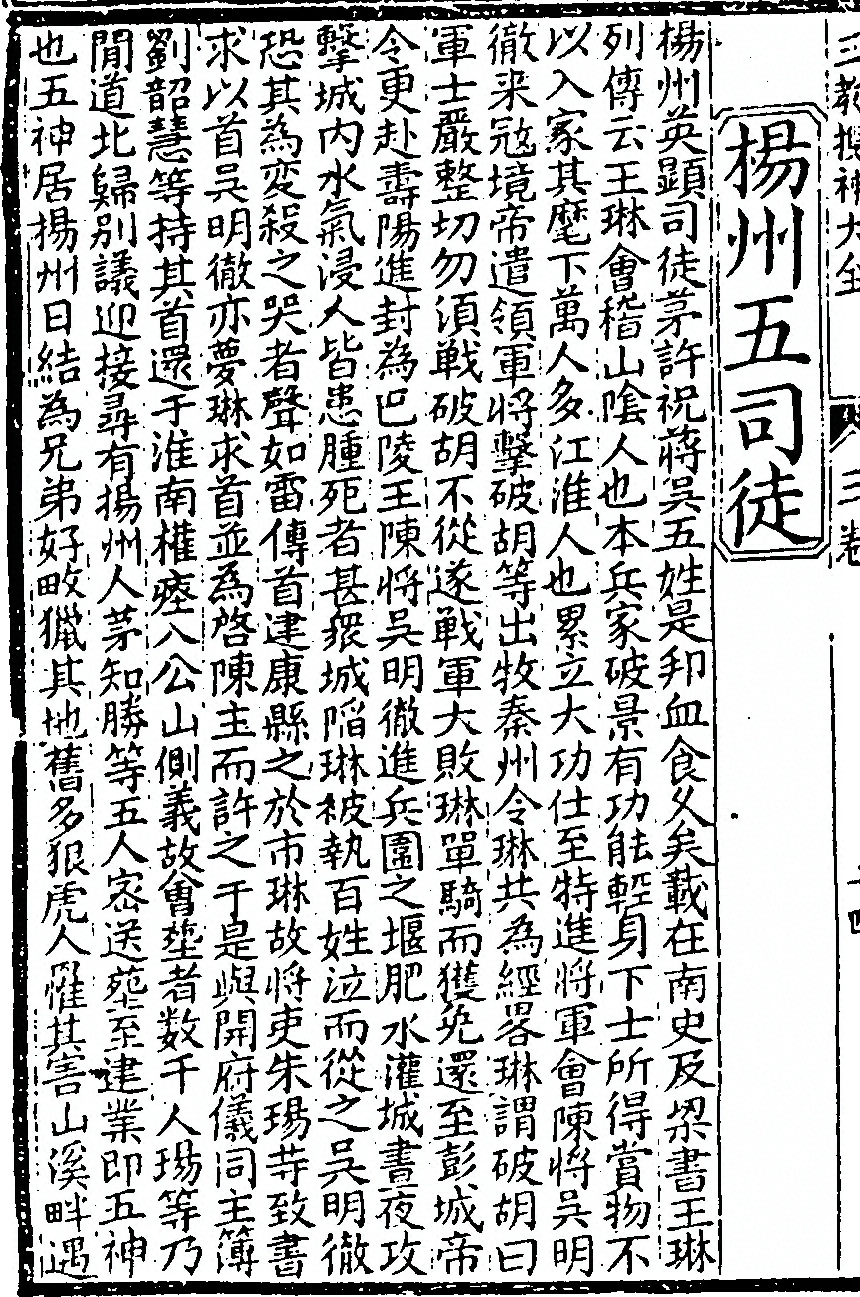 三教搜神大全
三卷
楊州五司徒
楊州英顯司徒茅許祝蔣吳五姓是邦血食久矣載在南史及梁書王琳
列傳云王琳會稽山陰人也本兵家破景有功能輕身下士所得賞物不
以入家其麾下萬人多江淮人也累立大功仕至特進將軍會陳將吳明
徹来冦境帝遣領軍將擊破胡等出牧秦州令琳共為經畧琳謂破胡曰
軍士嚴整切勿湏戦破胡不從遂戦軍大敗琳單騎而獲免還至彭城帝
令更赴壽陽進封為巴陵王陳將吳明徹進兵圍之堰肥水灌城晝夜攻
擊城内水氣浸人皆患腫死者甚衆城陷琳被執百姓泣而從之吳明徹
恐其為変殺之哭者聲如雷傳首建康縣之於市琳故將吏朱瑒等致書
求以首吳明徹亦夢琳求首並為啓陳主而許之于是與開府儀同主簿
劉韶慧等持其首還于淮南權瘞八公山側義故會塟者数千人瑒等乃
間道北歸别議迎接尋有揚州人茅知勝等五人宻送塟至建業即五神
也五神居揚州日結為兄弟好畋獵其地舊多狼虎人罹其害山溪畔遇